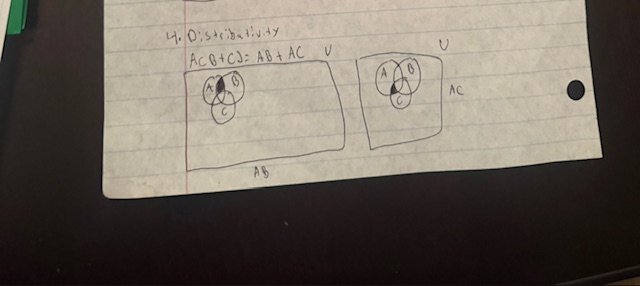 4. Distributivity
A(B+C)= AB + AC U
U
A B
C
A B
C
AC
AB